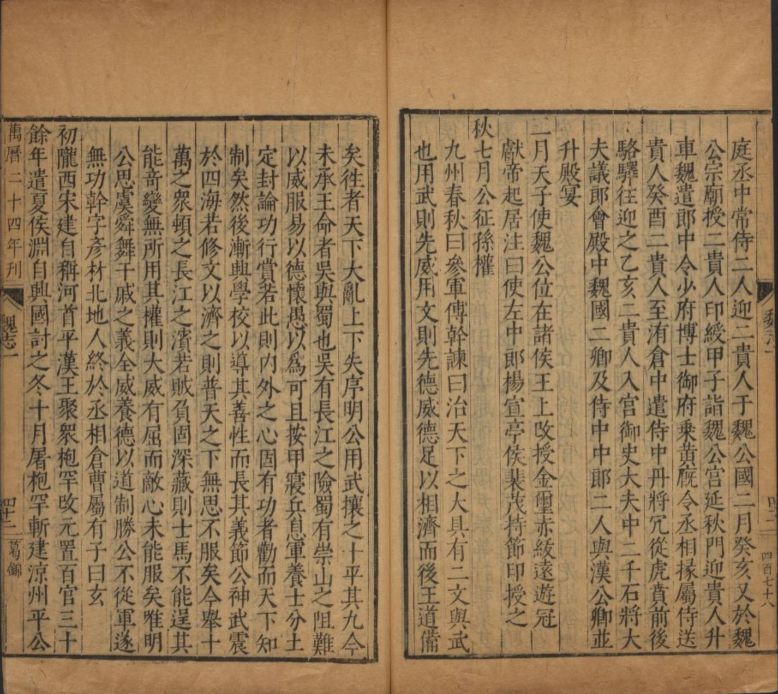 庭丞中常侍二人迎二貴人于魏公國二月癸亥又於魏
公宗廟授二貴人印綬甲子詣魏公宮延秋門迎貴人升
車魏遣郎中令少府博士御府乗黄廐令丞相掾屬侍送
貴人癸酉二貴人至洧倉中遣侍中丹將冗從虎賁前後
駱驛往迎之乙亥二貴人入宮御史大夫中二千石將大
夫議郎會殿中魏國二卿及侍中中郎二人與漢公卿並
升殿宴
三月天子使魏公位在諸侯王上改授金璽赤紱遠遊冠
獻帝起居注曰使左中郎揚宣亭侯裴茂持節印授之
秋七月公征孫權
九州春秋曰參軍傅幹諫曰治天下之大具有二文與武
也用武則先威用文則先德威德足以相濟而後王道備
四百七十八
矣徃者天下大亂上下失序明公用武攘之十平其九今
未承王命者吳與蜀也吳有長江之險蜀有崇山之阻難
以威服易以德懷愚以爲可且按甲寢兵息軍養士分土
定封論功行賞若此則内外之心固有功者勸而天下知
制矣然後漸興學校以導其善性而長其義節公神武震
於四海若修文以濟之則普天之下無思不服矣今舉十
萬之衆頓之長江之濱若賊負固深藏則士馬不能逞其
能奇變無所用其權則大威有屈而敵心未能服矣唯明
公思虞舜舞干戚之義全威養德以道制勝公不從軍遂
無功幹字彦材北地人終於丞相倉曹屬有子曰玄
初隴西宋建自稱河首平漢王聚衆枹罕改元置百官三十
餘年遣夏侯淵自興國討之冬十月屠枹罕斬建涼州平公
萬曆二十四年刊
魏志一
四十二